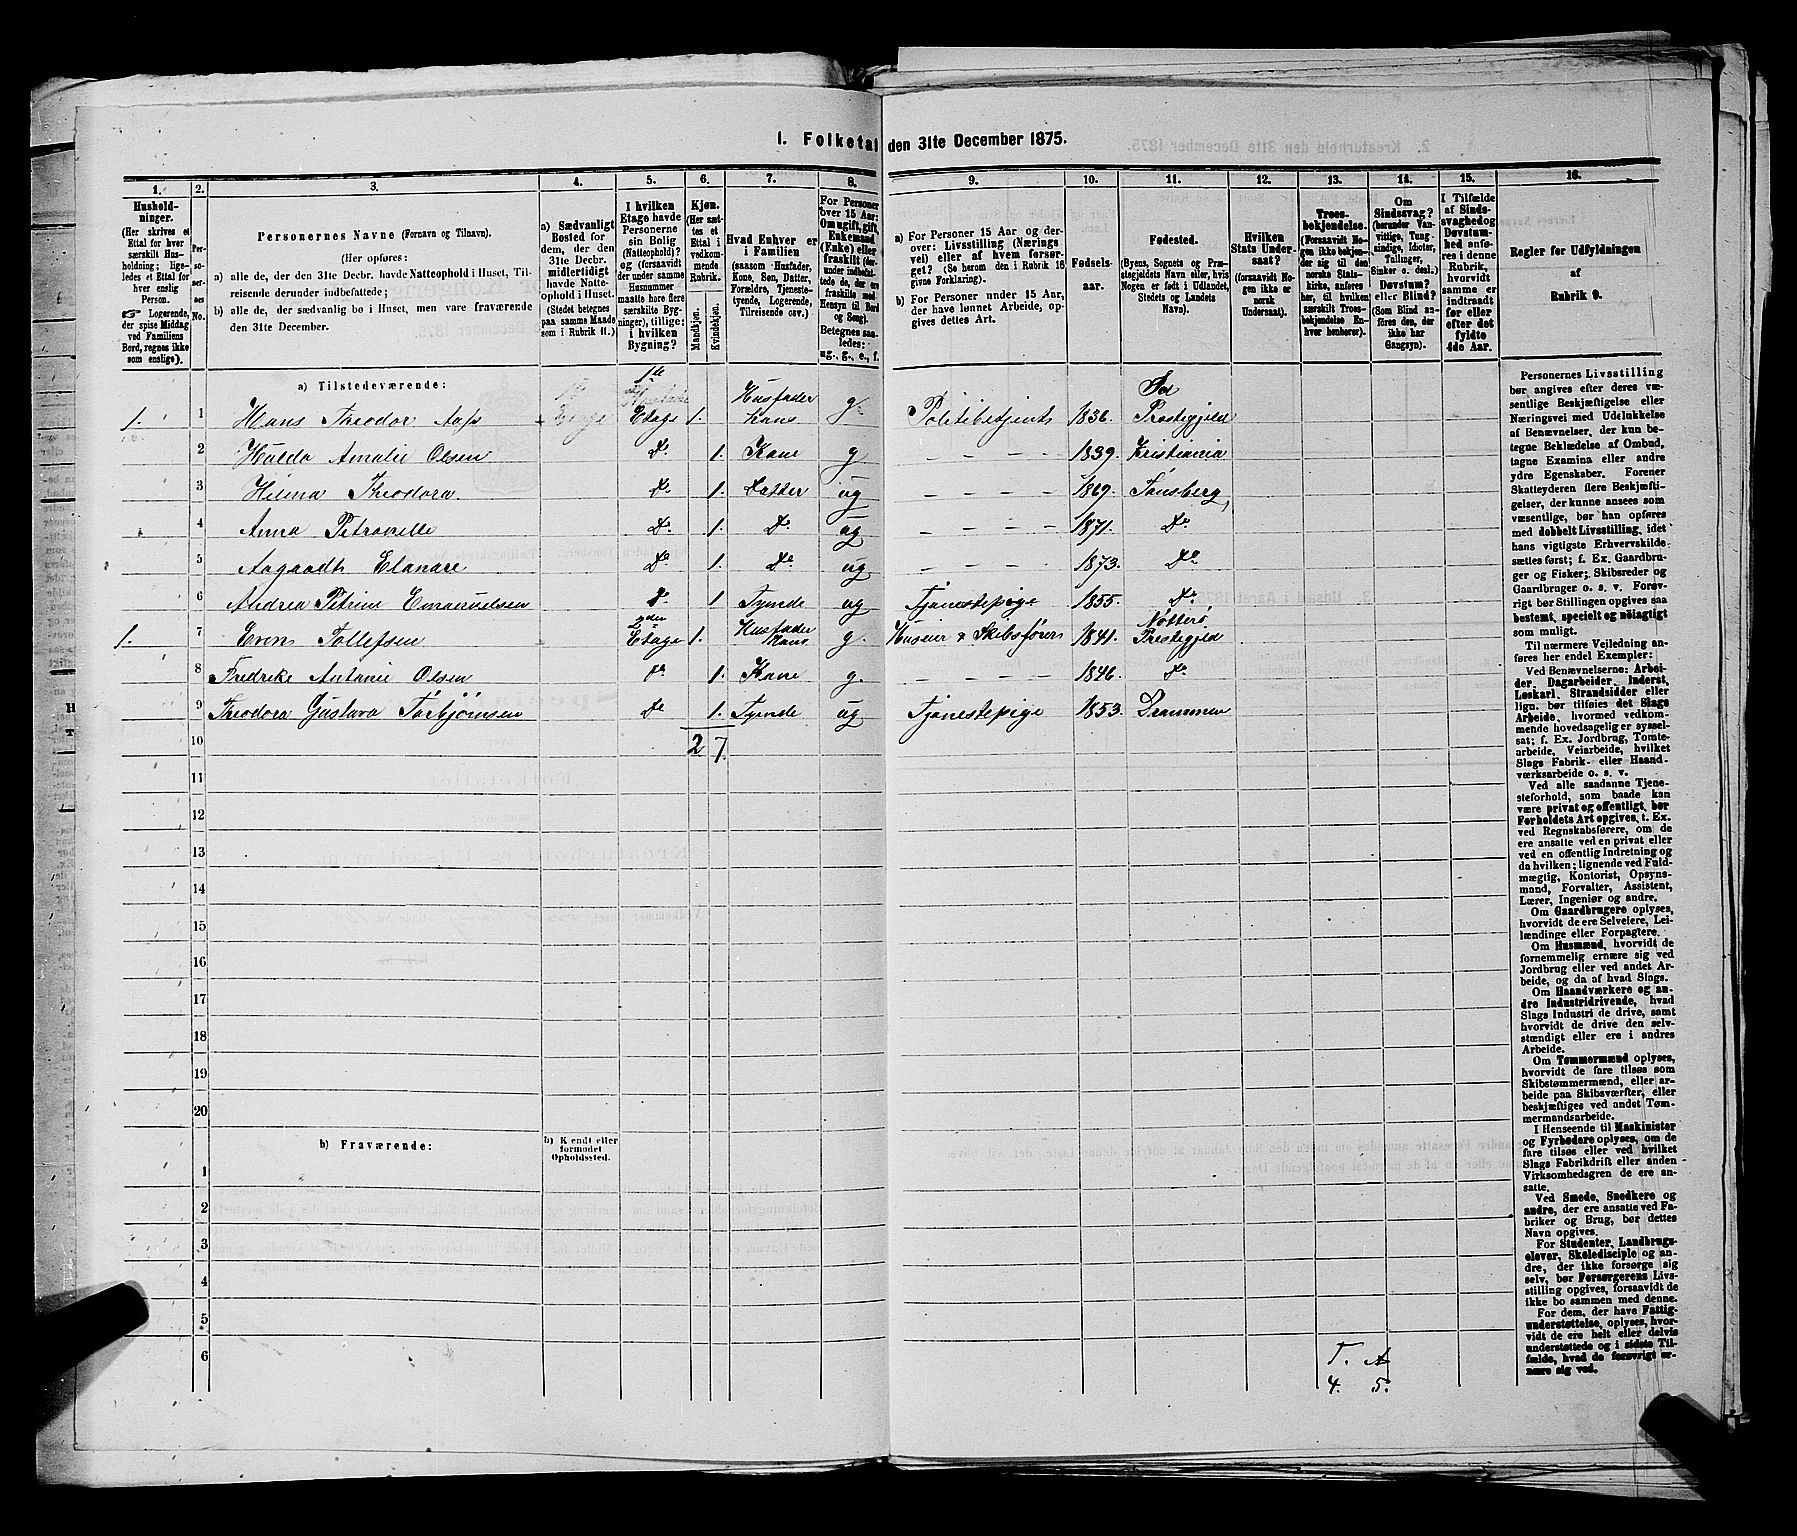 1. Folketal den 31te December 1875.
1. 2. 3. 4. 5. 6. 7. 8. 9. 10. 11. 12. 13. 14. 15. 16.
Husholdninger. (Her skrives et Ettal for hver særskilt Husholdning; ligeledes et Ettal for hver enslig Person. Logerende, der spise Middag ved Familiens Bord, regnes ikke som enslige).
Personernes No.
Personernes Navne (Fornavn og Tilnavn).
(Her opføres:
a) alle de, der den 31te Decbr. havde Natteophold i Huset, Tilreisende derunder indbefattede;
b) alle de, der sædvanlig bo i Huset, men vare fraværende den 31te December.
a) Sædvanligt Bosted for dem, der den 31te Decbr. midlertidigt havde Natteophold i Huset. (Stedet betegnes paa samme Maade som i Rubrik 11.)
I hvilken Etage havde Personerne sin Bolig (Natteophold)? og (forsaavidt der under samme Husnummer maatte høre flere særskilte Bygninger), tillige: i hvilken Bygning?
Kjøn. (Her sættes et Ettal i vedkommende Rubrik. Mandkjøn. Kvindekjøn.
Hvad Enhver er i Familien (saasom Husfader, Kone, Søn, Datter, Forældre, Tjenestetyende, Logerende, Tilreisende osv.)
For Personer over 15 Aar: Om ugift, gift, Enkemand (Enke) eller fraskilt (derunder indbefattede de, der ere fraskilte med Hensyn til Bord og Seng). Betegnes saaledes: ug., g., e., f.
a) For Personer 15 Aar og derover: Livsstilling (Næringsvei) eller af hvem forsørget? (Se herom den i Rubrik 16 givne Forklaring).
b) For Personer under 15 Aar, der have lønnet Arbeide, opgives dettes Art.
Fødselsaar.
Fødested. (Byens, Sognets og Præstegjeldets Navn eller, hvis Nogen er født i Udlandet, Stedets og Landets Navn).
Hvilken Stats Undersaat? (forsaavidt Nogen ikke er norsk Undersaat).
Troesbekjendelse. (Forsaavidt Nogen ikke bekjender sig til den norske Statskirke, anføres her, til hvilket særskilt Troesbekjendelse Enhver henhører).
Om Sindssvag? (herunder Vanvittige, Tungsindige, Idioter, Tullinger, Sinker o. desl.) Døvstum? eller Blind? (Som Blind anføres den, der ikke har Gangsyn).
I Tilfælde af Sindssvaghed og Døvstumhed anføres i denne Rubrik, hvorvidt samme er indtraadt før eller efter det fyldte 4de Aar.
Regler for Udfyldningen af Rubrik 9.
a) Tilstedeværende:
1. 1 Hans Theodor Aas 1te Etage 1. Husfader g. Politibetjent 1836. Præstegjeld
2 Hulda Amalie Olsen Do 1. Kone g - - - - 1839. Kristiania
3 Hilma Theodora Do 1. Datter ug - - - - 1869. Tønsberg
4 Anna Petronelle Do 1. Do ug - - - - 1871. Do
5 Aagaadt Elanare Do 1. Do ug - - - - 1873. Do
6 Andrea Petrine Emanuelsen Do 1 Tyende ug Tjenestepige 1855. Do
1. 7 Even Tollefsen 2den Etage 1. Husfader g. Huseier & Skibsfører 1841. Nøtterø Prestegjeld
8 Fredrike Antonie Olsen Do 1. Kone g. - - - - 1846. Do
9 Theodora Gustava Torbjørnsen Do 1. Tyende ug Tjenestepige 1853. Drammen
10 2 7.
11
12
13
14
15
16
17
18
19
20
b) Fraværende: b) Kendt eller formodet Opholdssted.
1
2
3
4
5
6
T. A
4. 5.
Personernes Livsstilling bør angives efter deres væsentlige Beskjæftigelse eller Næringsvei med Udelukkelse af Benævnelser, der kun betegne Beklædelse af Ombud, tagne Examina eller andre ydre Egenskaber. Forener Skatteyderen flere Beskjæftigelser, der kunne ansees som væsentlige, bør han opføres med dobbelt Livsstilling, idet hans vigtigste Erhvervskilde sættes først; f. Ex. Gaardbruger og Fisker; Skibsreder og Gaardbruger o. s. v. Forøvrigt bør Stillingen opgives saa bestemt, specielt og nøiagtigt som muligt.
Til nærmere Veiledning anføres her endel Exempler:
Ved Benævnelserne: Arbeider, Dagarbeider, Inderst, Løskarl, Strandsidder eller lign. bør tilføies det Slags Arbeide, hvormed vedkommende hovedsagelig er sysselsat; f. Ex. Jordbrug, Tomtearbeide, Veiarbeide, hvilket Slags Fabrik- eller Haandværksarbeide o. s. v.
Ved alle saadanne Tjenesteforhold, som baade kan være privat og offentligt, bør Forholdets Art opgives, t. Ex. ved Regnskabsførere, om de ere ansatte ved en privat eller ved en offentlig Indretning og da hvilken; lignende ved Fuldmægtig, Kontorist, Opsynsmand, Forvalter, Assistent, Lærer, Ingeniør og andre.
Om Gaardbrugere oplyses, hvorvidt de ere Selveiere, Leilændinge eller Forpagtere.
Om Husmænd, hvorvidt de fornemmelig ernære sig ved Jordbrug eller ved andet Arbeide, og da af hvad Slags.
Om Haandværkere og andre Industridrivende, hvad Slags Industri de drive, samt hvorvidt de drive den selvstændigt eller ere i andres Arbeide.
Om Tømmermænd oplyses, hvorvidt de fare tilsøs som Skibstømmermænd, eller arbeide paa Skibsværfter, eller beskjæftiges ved andet Tømmermandsarbeide.
I Henseende til Maskinister og Fyrbødere oplyses, om de fare tilsøs eller ved hvilket Slags Fabrikdrift eller anden Virksomhedsgren de ere ansatte.
Ved Smede, Snedkere og andre, der ere ansatte ved Fabriker og Brug, bør dettes Navn opgives.
For Studenter, Landbrugselever, Skoledisciple og andre, der ikke forsørge sig selv, bør Forsørgerens Livsstilling opgives, forsaavidt de ikke bo sammen med denne.
For dem, der have Fattigunderstøttelse, oplyses, hvorvidt de ere helt eller delvis understøttede og i sidste Tilfælde, hvad de forøvrigt ernære sig ved.